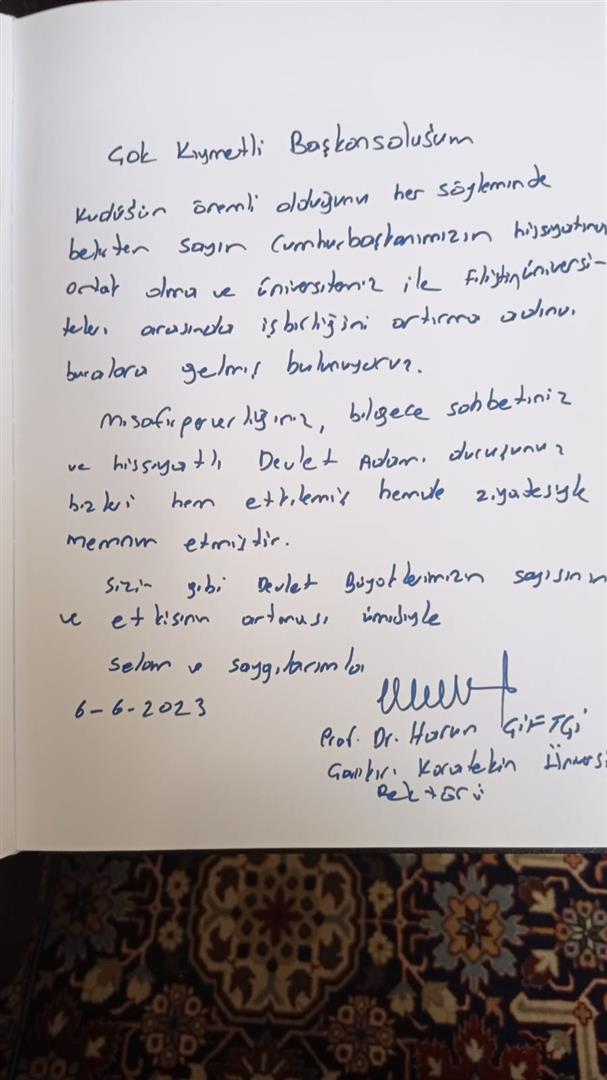 Çok Kıymetli Başkonsolosum
Kudüsün önemli olduğunu her söyleminde
belirten sayın Cumhurbaşkanımızın hissiyatına
ortak olma ve üniversitemiz ile Filistin üniversi-
teleri arasında işbirliğini artırma adına
buralara gelmiş bulunuyoruz.
Misafirperverliğiniz, bilgece sohbetiniz
ve hissiyatlı Devlet Adamı duruşunuz
bizleri hem etkilemiş hemde ziyadesiyle
memnun etmiştir.
Sizin gibi Devlet Büyüklerimizin sayısının
ve etkisinin artması ümidiyle
Selam ve saygılarımla
6-6-2023
Prof. Dr. Harun ÇİFTÇİ
Çankırı Karatekin Ünivers
Rektörü